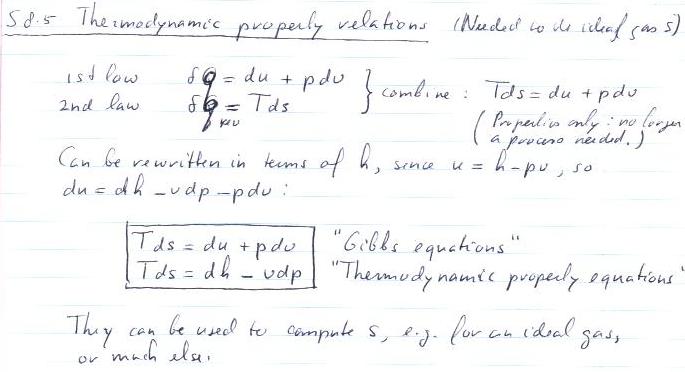 S 8.5 Thermodynamic property relations (Needed to do ideal gas s)
1st law δq = du + pdv } combine : Tds = du + pdv
2nd law δq rev = Tds
(Properties only : no longer a process needed.)
Can be rewritten in terms of h, since u = h - pv, so
du = dh - vdp - pdv :
Tds = du + pdv "Gibbs equations"
Tds = dh - vdp "Thermodynamic property equations"
They can be used to compute s, e.g. for an ideal gas,
or much else.